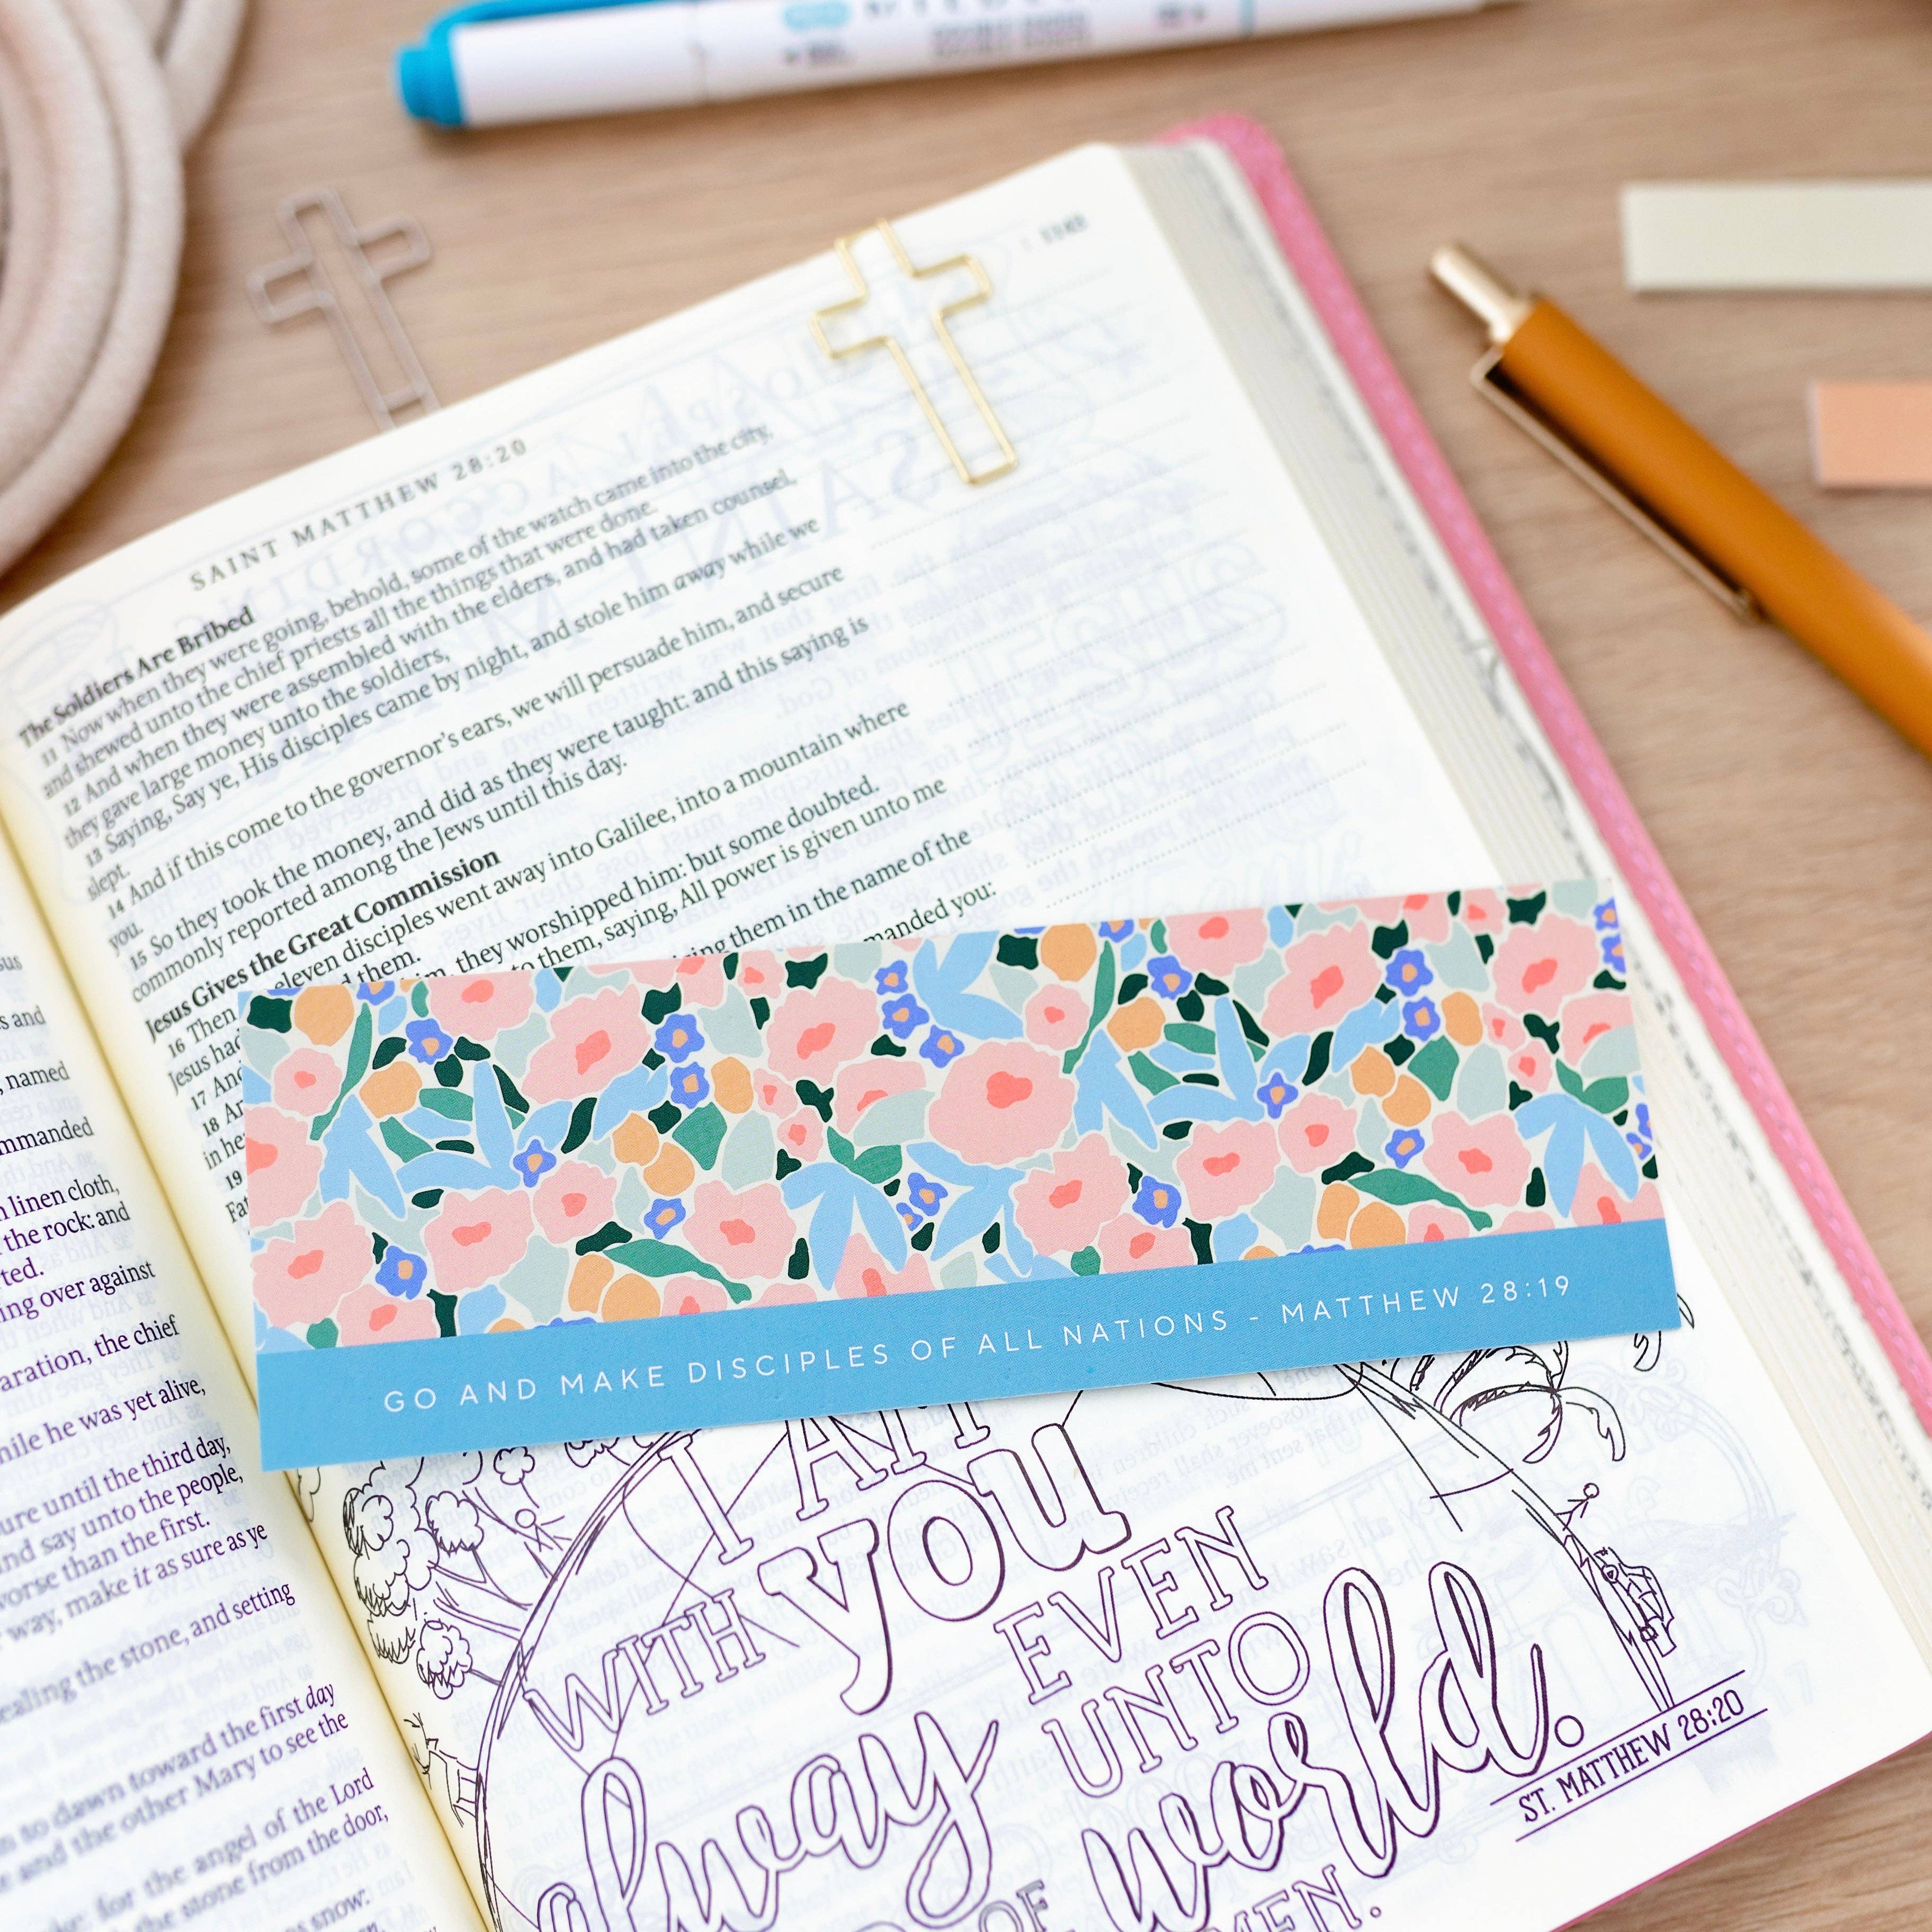 SAINT MATTHEW 28:20
The Soldiers Are Bribed
11 Now when they were going, behold, some of the watch came into the city,
and shewed unto the chief priests all the things that were done.
12 And when they were assembled with the elders, and had taken counsel,
they gave large money unto the soldiers,
13 Saying, Say ye, His disciples came by night, and stole him away while we
slept.
14 And if this come to the governor's ears, we will persuade him, and secure
you.
15 So they took the money, and did as they were taught: and this saying is
commonly reported among the Jews until this day.
Jesus Gives the Great Commission
16 Then eleven disciples went away into Galilee, into a mountain where
Jesus had them.
17 And him, they worshipped him: but some doubted.
18 to them, saying, All power is given unto me
in
19 them in the name of the
manded you:
GO AND MAKE DISCIPLES OF ALL NATIONS - MATTHEW 28:19
I AM
WITH you
alway
EVEN
UNTO
world.
OF
ST. MATTHEW 28:20
s and
, named
mmanded
n linen cloth,
the rock: and
ted.
ing over against
aration, the chief
while he was yet alive,
ure until the third day,
and say unto the people,
worse than the first.
way, make it as sure as ye
ealing the stone, and setting
to dawn toward the first day
and the other Mary to see the
for the angel of the Lord
the stone from the door,
snow: